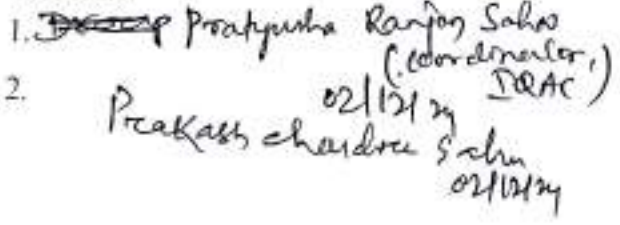 1. Pratyusha Ranjan Sahoo
(Coordinator,
IQAC)
02/12/24
2. Prakash Chandra Sahu
02/12/24